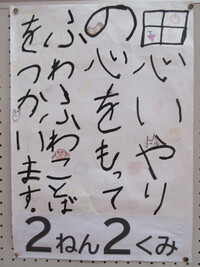 思いやり
の心をもって
ふわふわことば
をつかいます。
2ねん2くみ